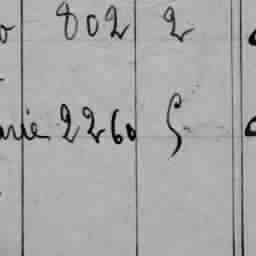 802 2
2260 5